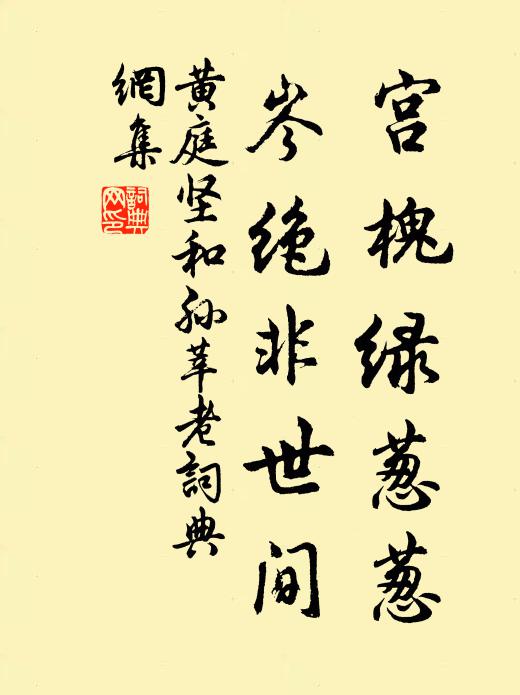 宫槐绿葱葱
岑绝非世间
黄庭坚和孙莘老詞典
網集
詞典
网印